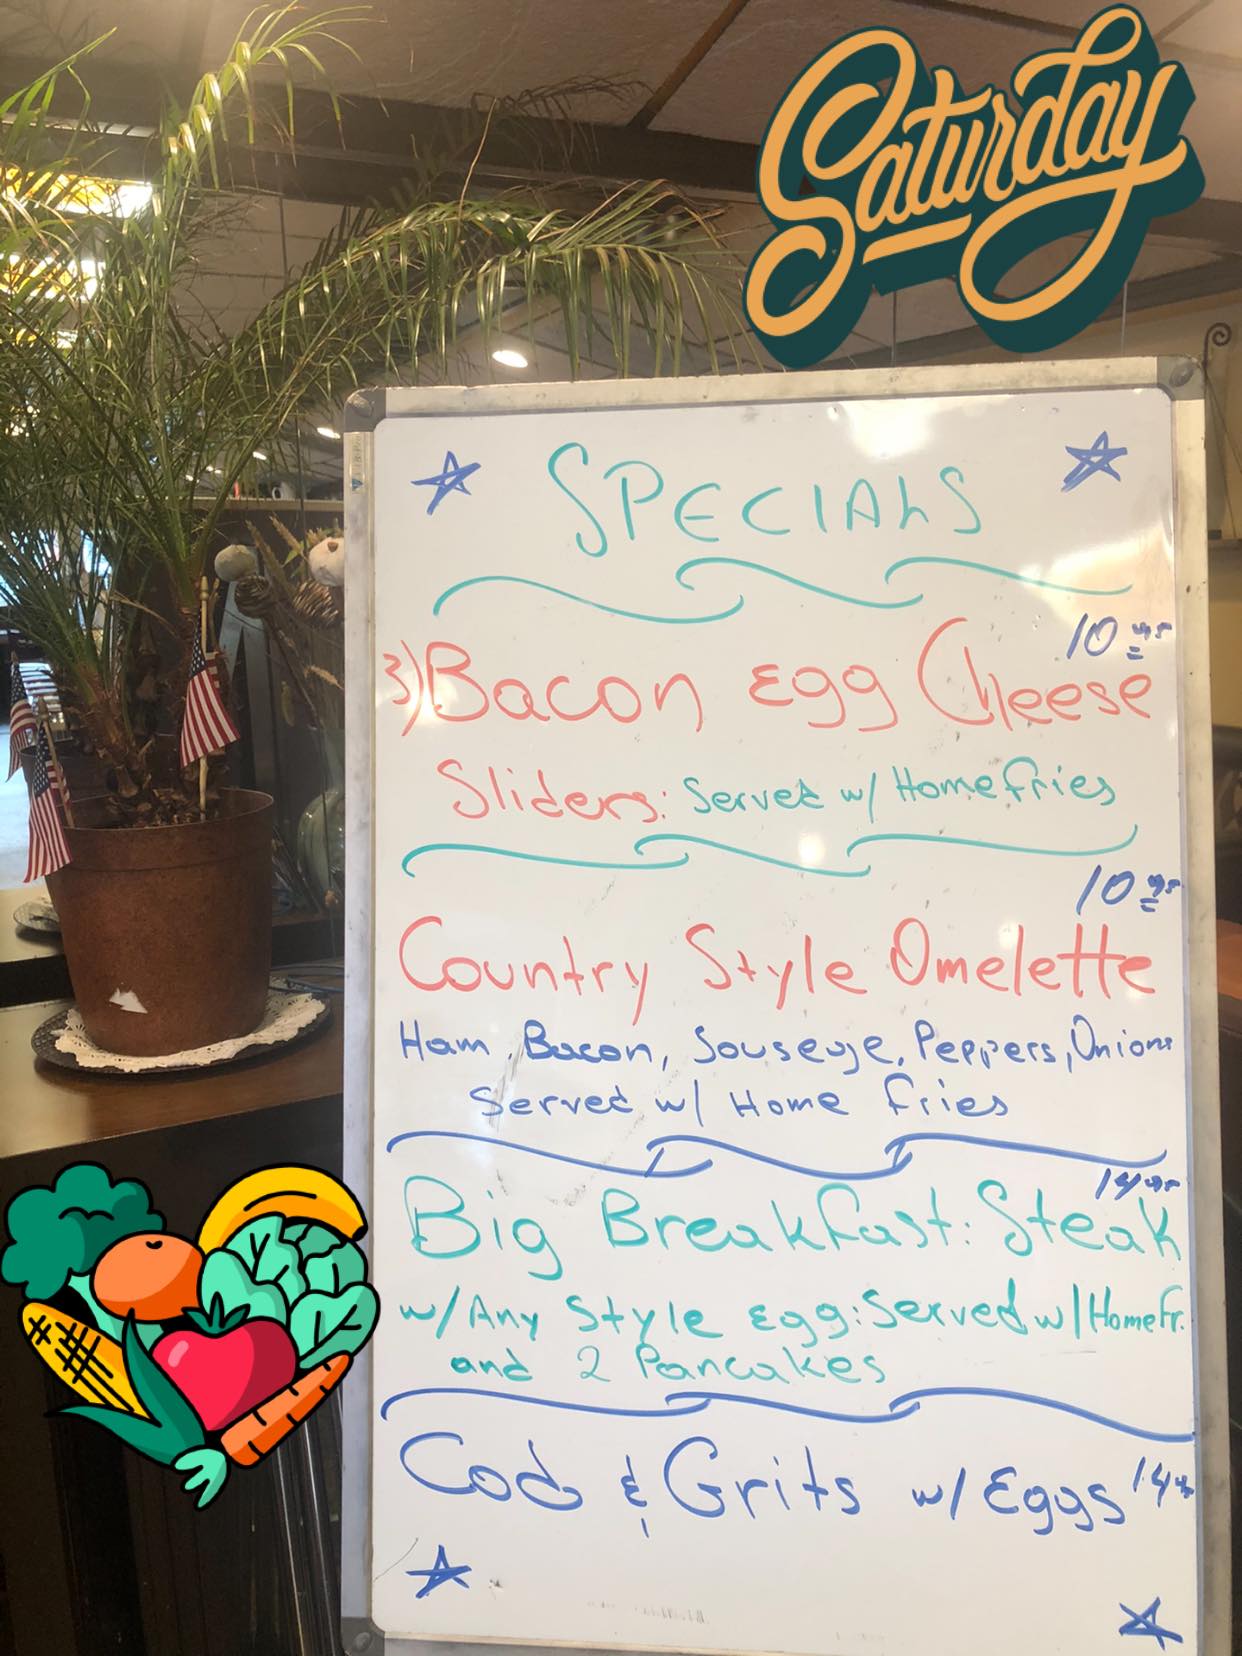 Saturday
SPECIALS
10
3) Bacon Egg Cheese
Sliders: Served w/ Home fries
10
Country Style Omelette
Ham, Bacon, Souseuge, Peppers, Onions
Served w/ Home fries
14
Big Breakfast: Steak
w/ Any Style Egg: Served w/ Home Fr.
and 2 Pancakes
Cod & Grits w/ Eggs 14